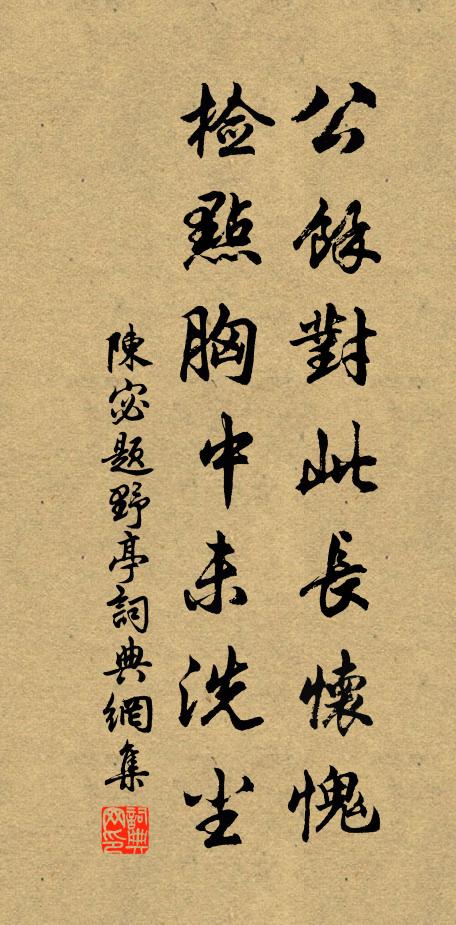 公餘對此長懷愧
檢點胸中未洗塵
陳宓題野亭詞典網集
詞典網印